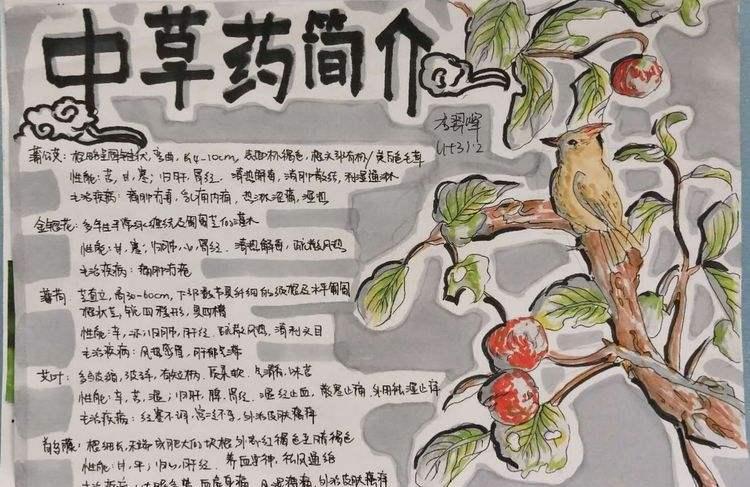 中草药简介
李羿晖
蒲公英：根略呈圆锥状，弯曲，长4-10cm，表面棕褐色，根头部有棕/黄白色毛茸
性能：苦，甘，寒；归肝，胃经．清热解毒，消肿散结，利湿通淋
主治疾病：痈肿疔毒，乳痈内痈，热淋涩痛，湿热
金银花：多年生半常绿缠绕及匍匐茎的灌木
性能：甘，寒；归肺，心，胃经．清热解毒，疏散风热
主治疾病：痈肿疔疮
薄荷：茎直立，高30-60cm，下部数节具纤细的须根及水平匍匐
根状茎，锐四棱形，具四槽
性能：辛，凉；归肺，肝经．疏散风热，清利头目
主治疾病：风热感冒，肝郁气滞
艾叶：多皱缩，破碎，有短柄．质柔软．气清香，味苦
性能：辛，苦，温；归肝，脾，肾经．温经止血，散寒止痛，外用祛湿止痒
主治疾病：经寒不调，宫冷不孕，外治皮肤瘙痒
首乌藤：根细长，末端成肥大的块根，外表红褐色至暗褐色
性能：甘，平；归心，肝经．养血安神，祛风通络